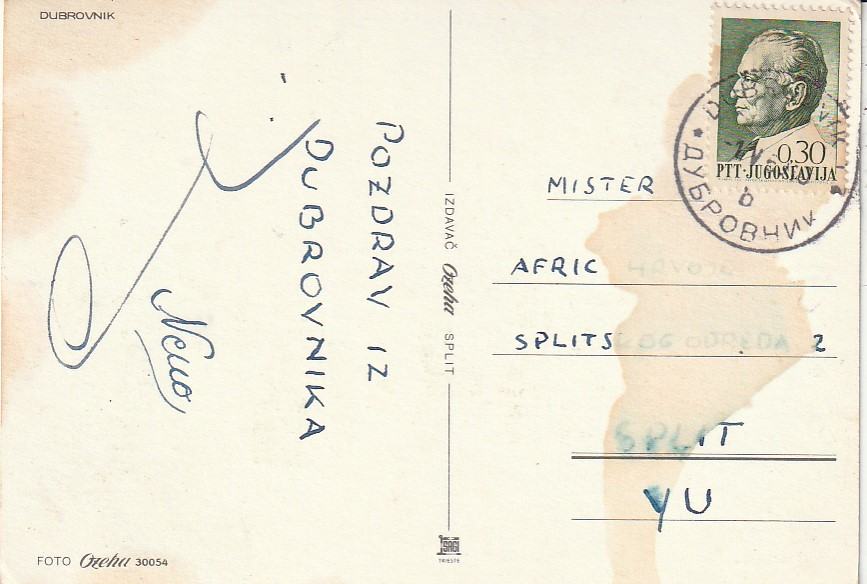 DUBROVNIK
POZDRAV IZ
DUBROVNIKA
Neno
IZDAVAČ Ozeha SPLIT
0,30
PTT·JUGOSLAVIJA
ДУБРОВНИК
MISTER
AFRIC HRVOJE
SPLITSKOG ODREDA 2
SPLIT
YU
FOTO Ozeha 30054
TRIESTE